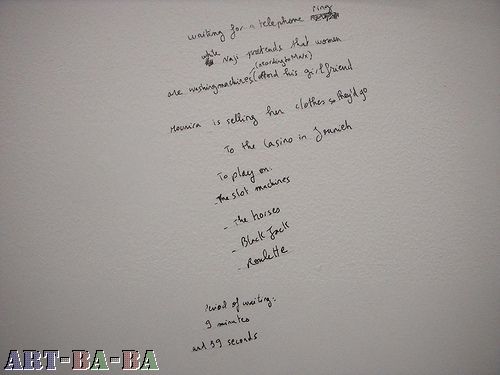 waiting for a telephone ring
while Naji pretends that women
(according to Marx)
are washing machines, (afford his girlfriend
Mounira is selling her clothes so they'd go
To the Casino in Jounieh
To play on:
- The slot machines
- The horses
- Black Jack
- Roulette
Period of waiting:
9 minutes
and 39 seconds
ART-BA-BA